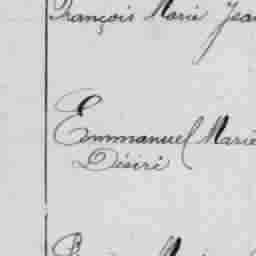 François Marie Jean
Emmanuel Marie
Désiré
Marie